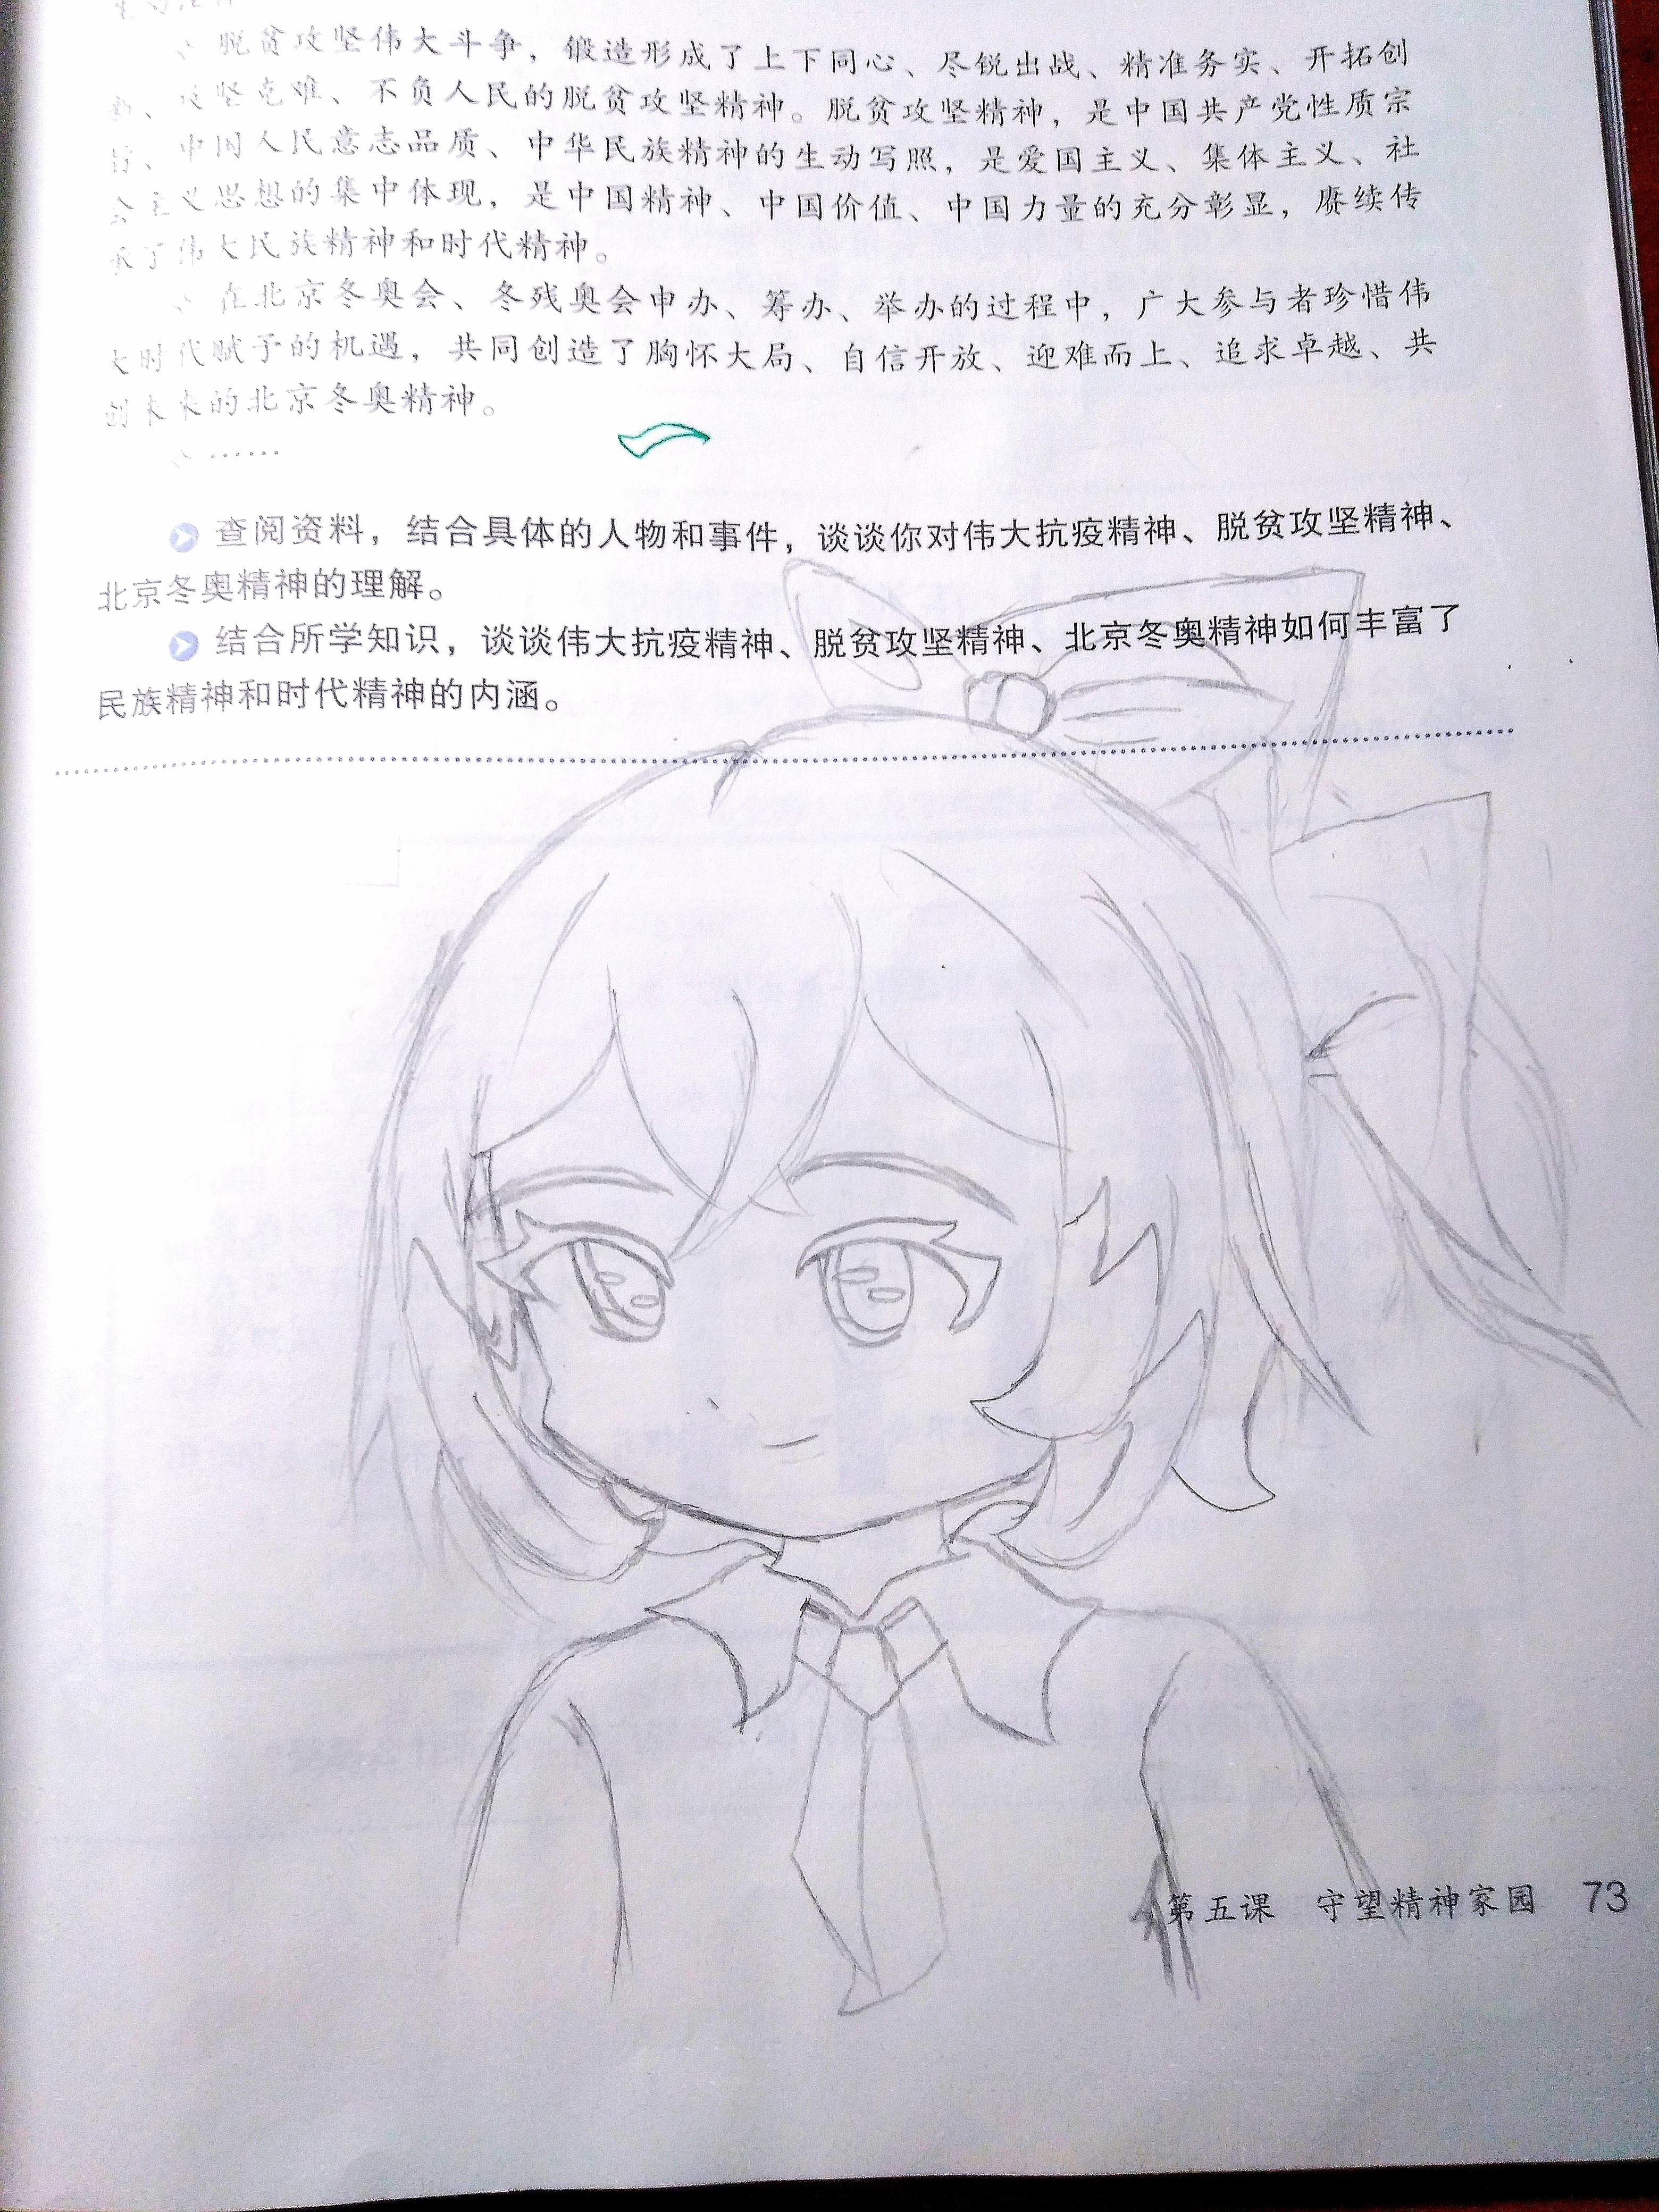 脱贫攻坚伟大斗争，锻造形成了上下同心、尽锐出战、精准务实、开拓创
新、攻坚克难、不负人民的脱贫攻坚精神。脱贫攻坚精神，是中国共产党性质宗
旨、中国人民意志品质、中华民族精神的生动写照，是爱国主义、集体主义、社
会主义思想的集中体现，是中国精神、中国价值、中国力量的充分彰显，赓续传
承了伟大民族精神和时代精神。
在北京冬奥会、冬残奥会申办、筹办、举办的过程中，广大参与者珍惜伟
大时代赋予的机遇，共同创造了胸怀大局、自信开放、迎难而上、追求卓越、共
创未来的北京冬奥精神。
……
查阅资料，结合具体的人物和事件，谈谈你对伟大抗疫精神、脱贫攻坚精神、
北京冬奥精神的理解。
结合所学知识，谈谈伟大抗疫精神、脱贫攻坚精神、北京冬奥精神如何丰富了
民族精神和时代精神的内涵。
第五课 守望精神家园 73